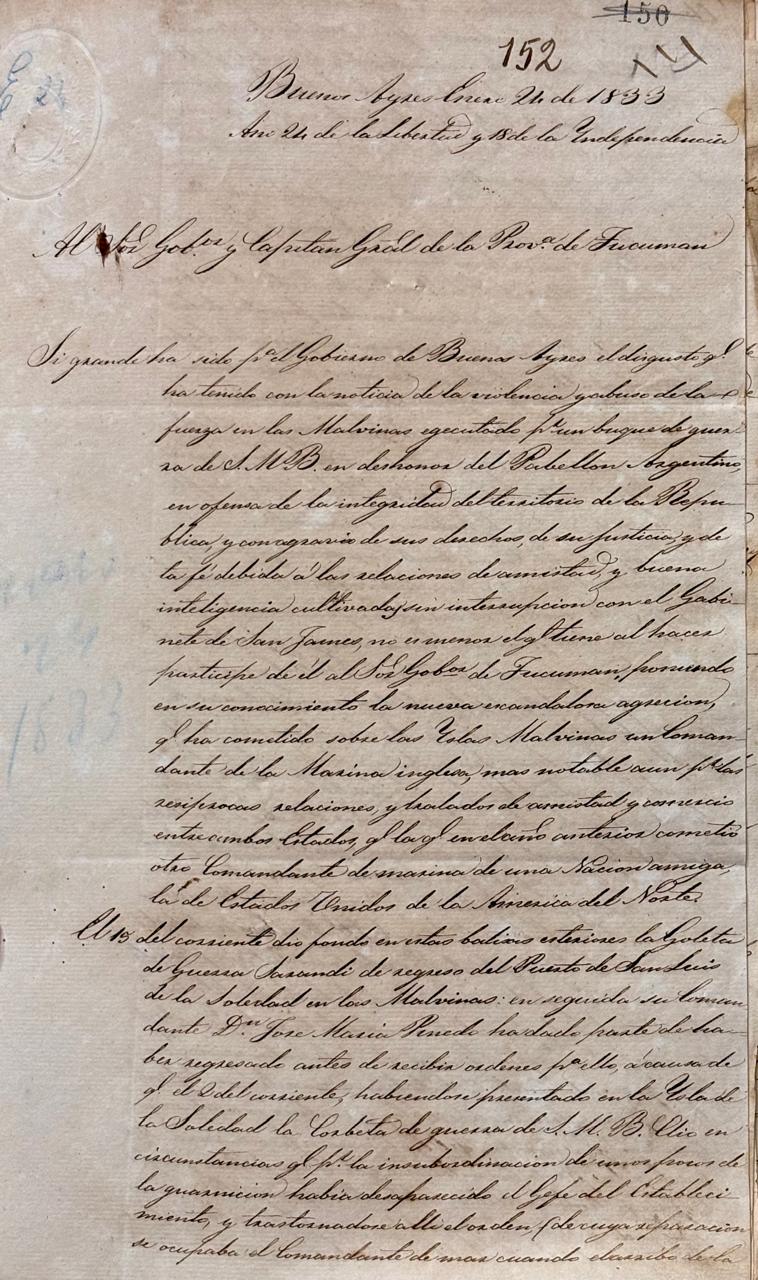 150
152
14
E 24
Buenos Ayres Enero 24 de 1833
Año 24 de la Libertad y 18 de la Independencia
Al Sor. Gobor. y Capitan Gral de la Prova. de Tucuman
Si grande ha sido pa. el Gobierno de Buenos Ayres el disgusto q.
ha tenido con la noticia de la violencia y abuso de la
fuerza en las Malvinas egecutado pr. un buque de guer-
ra de S. M. B. en deshonor del Pabellon Argentino,
en ofensa de la integridad del territorio de la Repu-
blica, y con agravio de sus derechos, de su justicia, y de
la fé debida á las relaciones de amistad, y buena
inteligencia cultivadas sin interrupcion con el Gabi-
nete de San James, no es menor el q. tiene al hacer
participe de él al Sor. Gobor. de Tucuman, poniendo
en su conocimiento la nueva escandalosa agrecion,
q. ha cometido sobre las Yslas Malvinas un Coman-
dante de la Marina inglesa, mas notable aun pr. las
resiprocas relaciones, y tratados de amistad y comercio
entre ambos Estados, q. la q. en el año anterior cometió
otro Comandante de marina de una Nacion amiga,
la de Estados Unidos de la America del Norte.
El 15 del corriente dio fondo en estas balizas esteriores la Goleta
de Guerra Sarandi de regreso del Puerto de San Luis
de la Soledad en las Malvinas: en seguida su Coman-
dante Dn. Jose Maria Pinedo ha dado parte de ha-
ber regresado antes de recibir ordenes pa. ello, á causa de
q. el 2 del corriente, habiendose presentado en la Ysla de
la Soledad la Corbeta de guerra de S. M. B. Clio en
circunstancias q. pr. la insubordinacion de unos pocos de
la guarnicion habia desaparecido el Gefe del Estableci-
miento, y trastornadose alli el orden, (de cuya reparacion
se ocupaba el Comandante de mar cuando el arribo de la
24
1833